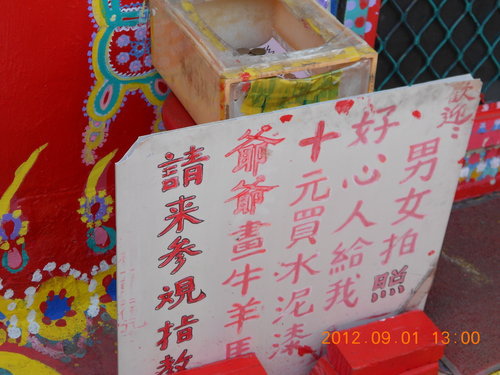 歡迎:
男女拍照
好心人給我
十元買水泥漆
爺爺畫牛羊馬
請来参規指教
2012.09.01 13:00